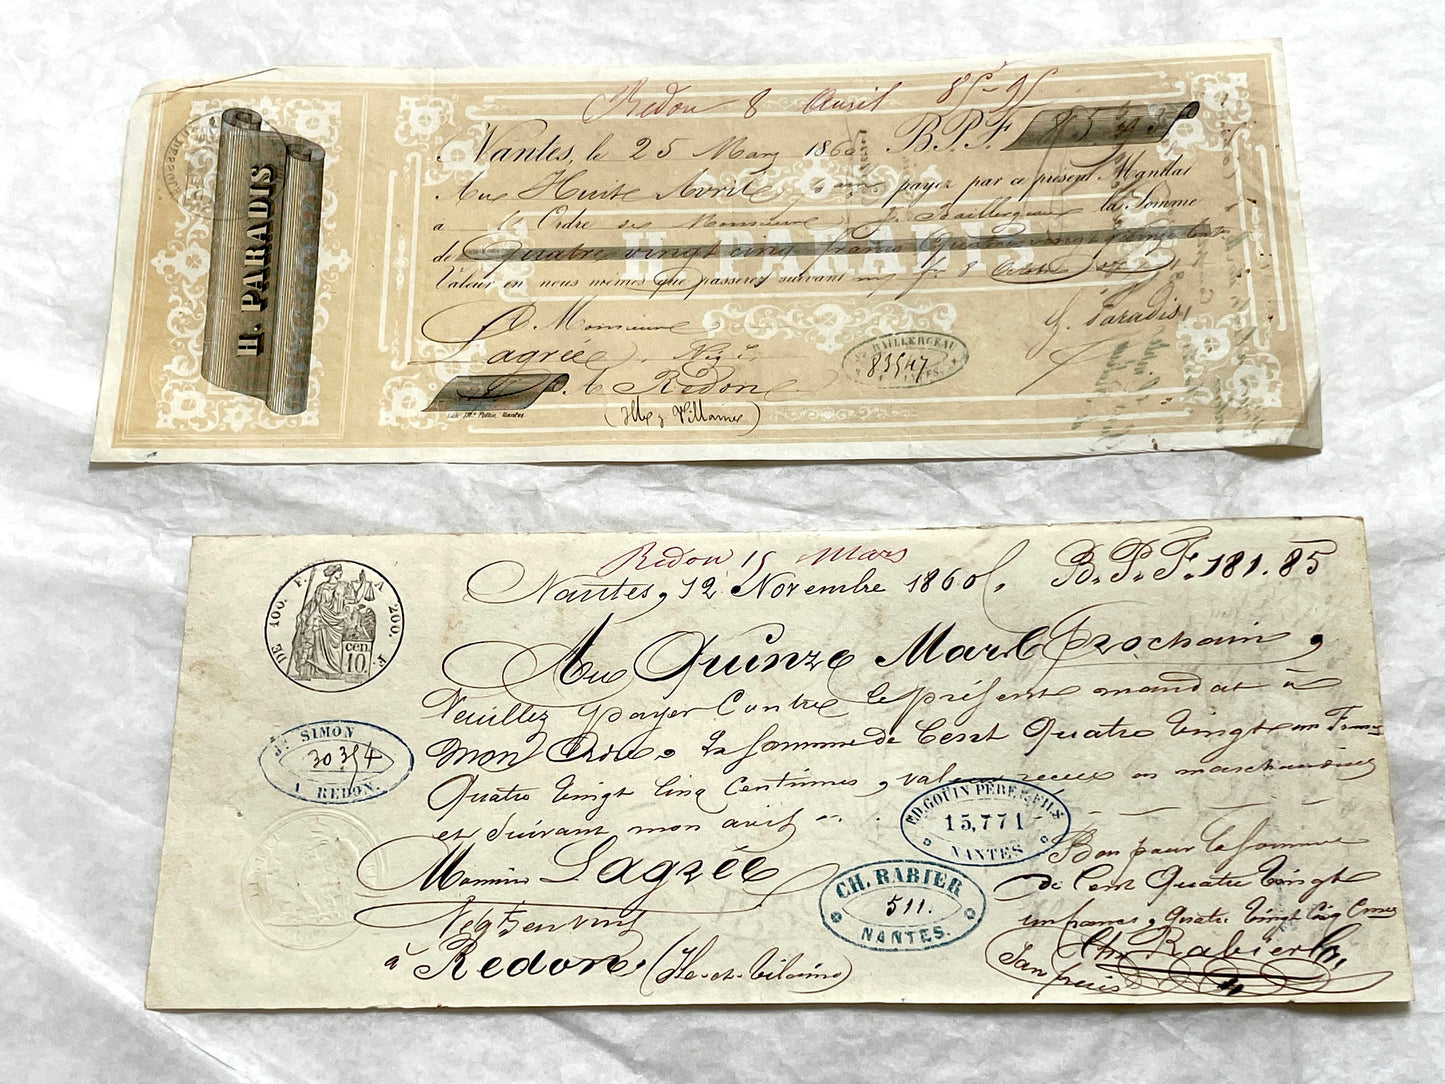 Redon 8 Avril 85-95
Nantes, le 25 Mars 1860 B.P.F. 85.95
Au Huit Avril payez par ce présent Mandat
à l'Ordre de Monsieur J. Baillergeau la Somme
de Quatre vingt cinq francs Quatre vingt quinze cent
Valeur en nous mêmes que passerez suivant
H. PARADIS
H. PARADIS
A Monsieur H. Paradis
Lagrée. Negt
à Redon
(Ille & Villaine)
Lith. Nantes
J. BAILLERGEAU
83547
NANTES
Redon 15 Mars
Nantes, 12 Novembre 1860. B.P.F. 181.85
Au Quinze Mars prochain,
Veuillez payer Contre le présent mandat à
mon Ordre, la somme de Cent Quatre Vingt un Francs
Quatre Vingt Cinq Centimes, valeur reçue en marchandises
et suivant mon avis
DE 100. F. A 200. F.
cen. 10.
J. SIMON
30354
A REDON.
ED. GOUIN PÈRE & FILS
15,771
NANTES
Bon pour la somme
de Cent Quatre Vingt
un francs, Quatre Vingt Cinq Cmes
Monsieur Lagrée
Negt en vins
à Redon (Ille-et-Vilaine)
CH. RABIER
511.
NANTES.
Ch. Rabier
San frais